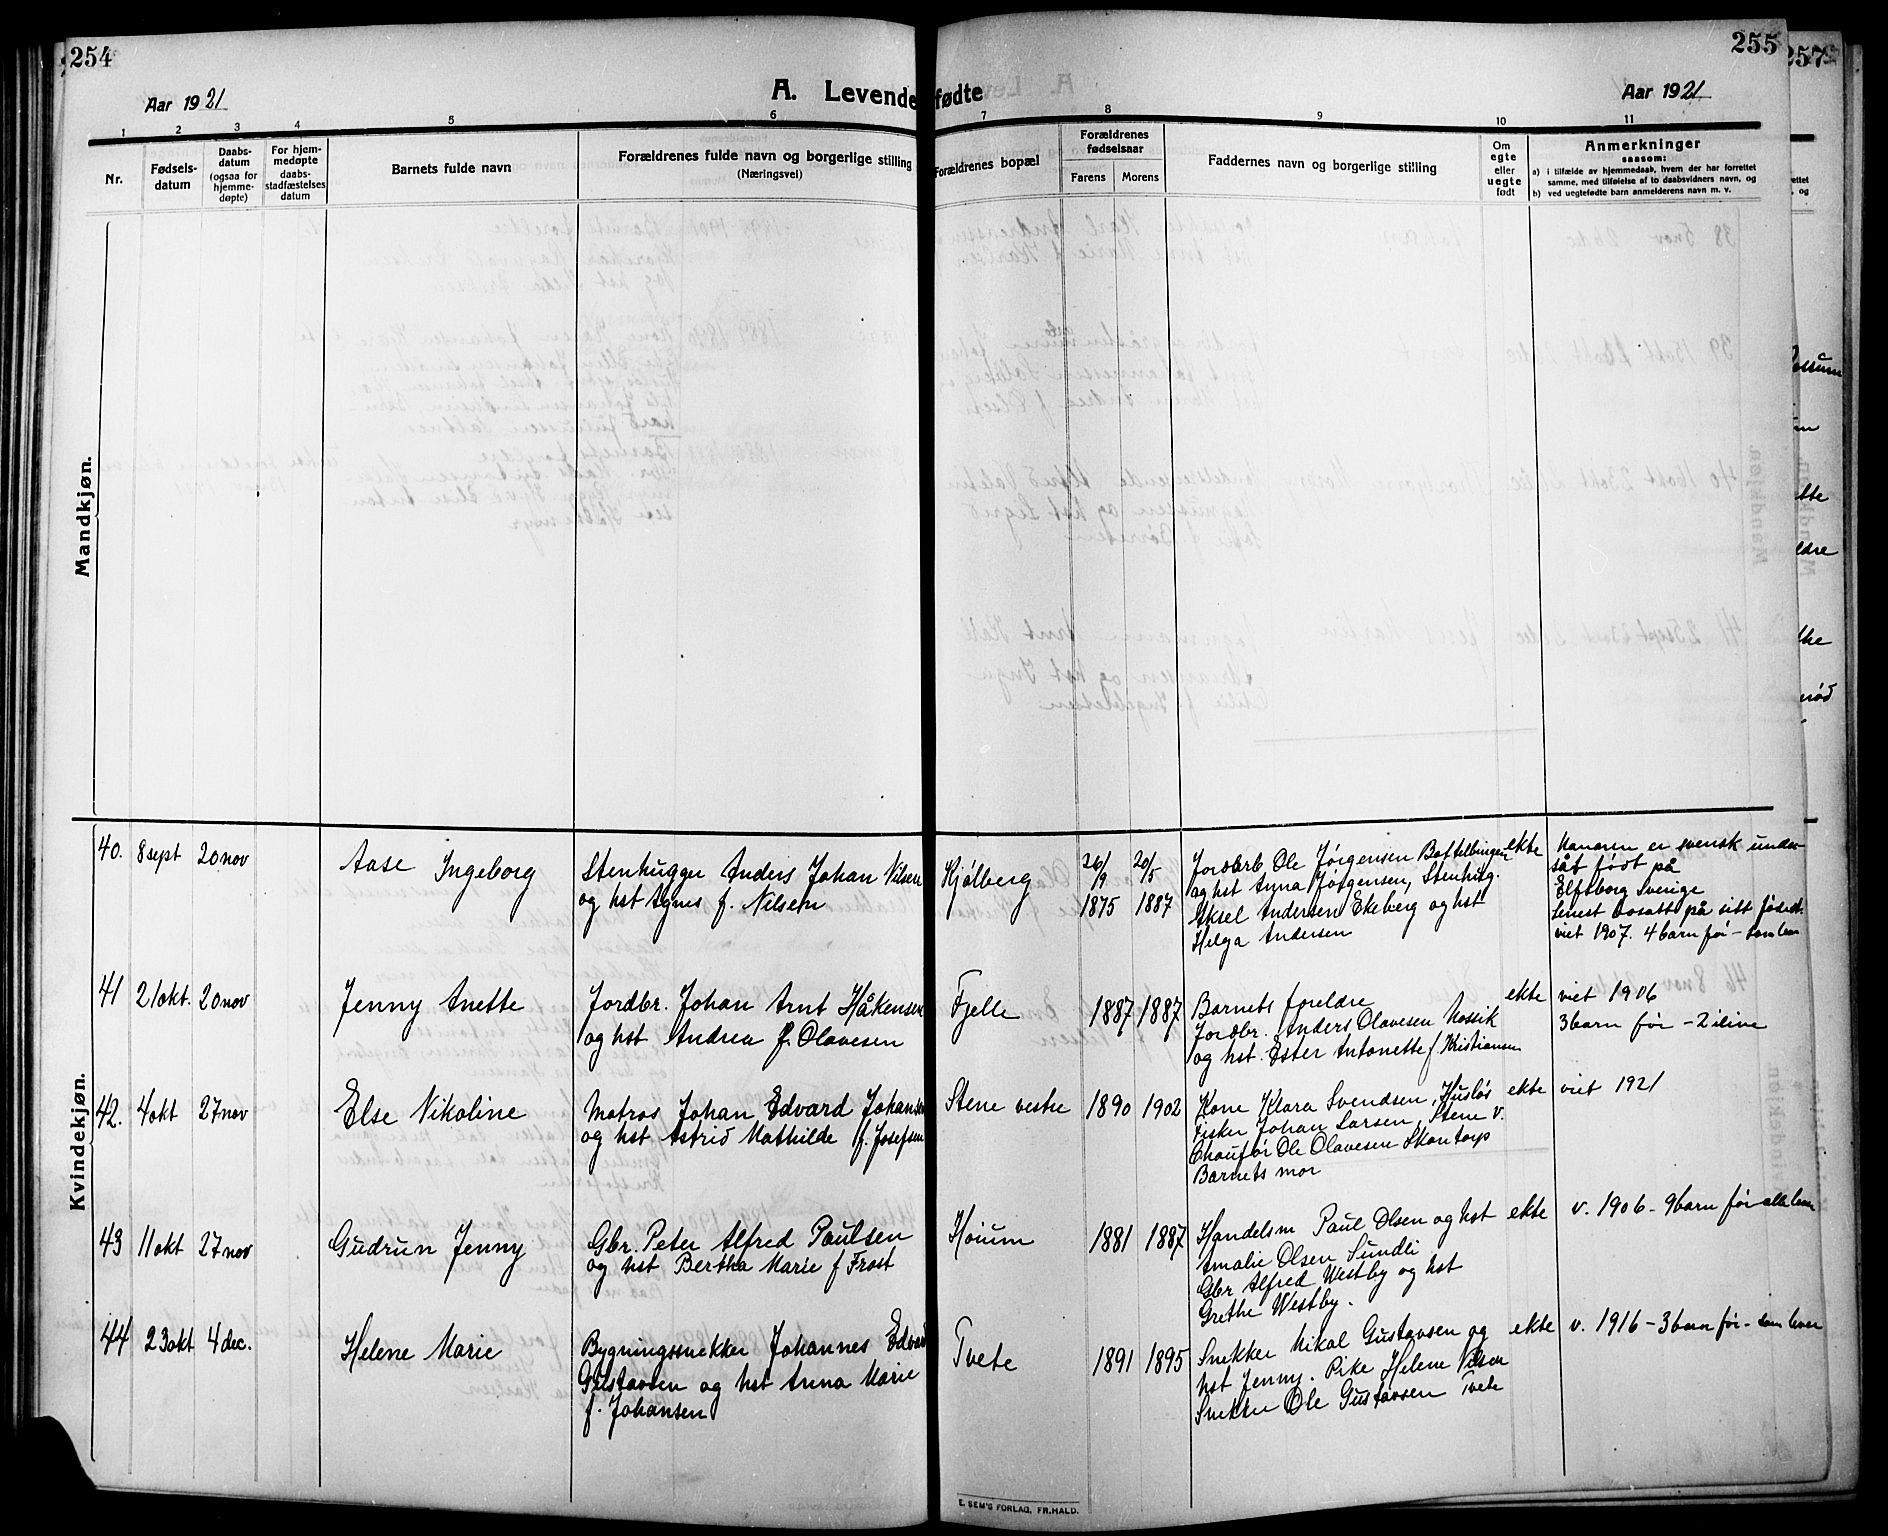 254
255
257
Aar 1921
A. Levendefødte
Aar 1921
1 2 3 4 5 6 7 8 9 10 11
Nr.
Fødsels-
datum
Daabs-
datum
(ogsaa for
hjemme-
døpte)
For hjem-
medøpte
daabs-
stadfæstelses
datum
Barnets fulde navn
Forældrenes fulde navn og borgerlige stilling
(Næringsvei)
Forældrenes bopæl
Forældrenes
fødselsaar
Farens Morens
Faddernes navn og borgerlige stilling
Om
egte
eller
uegte
født
Anmerkninger
saasom:
a) i tilfælde av hjemmedaab, hvem der har forrettet
samme, med tilføielse af to daabsvidners navn, og
b) ved uegtefødte barn anmelderens navn m. v.
Mandkjøn.
Kvindekjøn.
40. 8 sept 20 nov
Aase Ingeborg
Stenhugger Anders Johan Nilsen
og hst Agnes f. Nilsen
Kjølberg
26/9 1875
20/5 1887
Jordarb Ole Jørgensen
og hst Anna Jørgensen, Stenhug.
Aksel Andersen Ekeberg og hst
Helga Andersen
ekte
Mannen er svensk under-
såt født på
Elfsborg Sverige
Senest bosatt på sitt fødest.
viet 1907. 4 barn før – som lever
41 21 okt. 20 nov
Jenny Anette
Jordbr. Johan Arnt Håkensen
og hst Andrea f. Olavesen
Fjelle
1887 1887
Barnets foreldre
Jordbr. Anders Olavesen
og hst. Ester Antonette f Kristiansen
ekte
viet 1906
3 barn før – 2 ilive
42. 4 okt 27 nov
Else Nikoline
Matros Johan Edvard Johansen
og hst Astrid Mathilde f. Josefsen
Stene vestre
1890 1902
Kone Klara Svendsen, Husløs
Fisker Johan Larsen, Stene v.
Chaufør Ole Olavesen Skantorp
Barnets mor
ekte
viet 1921
43 11 okt 27 nov
Gudrun Jenny
Gbr. Peter Alfred Paulsen
og hst Bertha Marie f Frost
Høium
1881 1887
Handelsm Paul Olsen og hst
Amalie Olsen Sundli
Gbr Alfred Westby og hst
Grethe Westby.
ekte
v. 1906 – 9 barn før alle lever
44 23 okt 4 dec.
Helene Marie
Bygningssnekker Johannes Edvard
Gustavsen og hst Anna Marie
f. Johansen
Tvete
1891 1895
Snekker Mikal Gustavsen og
hst Jenny. Pike Helene Nilsen
Snekker Ole Gustavsen Tvete
ekte
v. 1916 – 3 barn før – som lever
E. SEM'S FORLAG, FR.HALD.